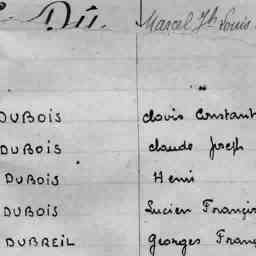 Du. Marcel Jh Louis
DUBOIS Clovis Constant
DUBOIS Claude Joseph
DUBOIS Henri
DUBOIS Lucien Franço
DUBREIL Georges Franç